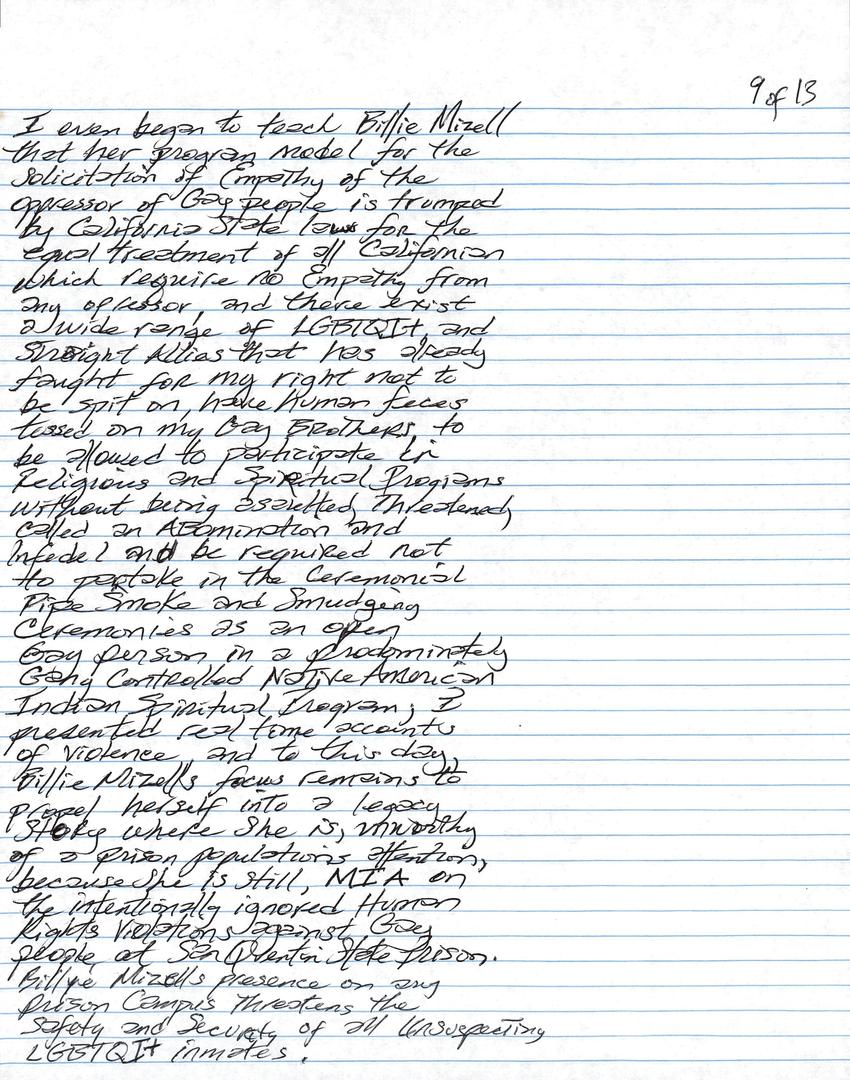 9 of 13
I even began to teach Billie Mizell
that her program model for the
solicitation of Empathy of the
oppressor of Gay people is trumped
by California State laws for the
equal treatment of all Californian
which require no Empathy from
any opressor, and there exist
a wide range of LGBTQI+, and
Straight Allias that has already
faught for my right not to
be spit on, have human feces
tossed on my Gay BROTHERS, to
be allowed to participate in
Religious and Spiritual Programs
without being assaulted, Threatened,
called an ABomination and
Infedel and be required not
to partake in the Ceremonial
Pipe Smoke and Smudging
Ceremonies as an open
Gay person in a prodominately
Gang Controlled Native American
Indian Spiritual Program, I
presented real time accounts
of violence, and to this day,
Billie Mizell's focus remains to
propel herself into a legacy
STORy where She is, unworthy
of a prison population's attention,
because She is still, MIA on
the intentionally ignored Human
Rights Violations against Gay
people at San Quentin State Prison.
Billye Mizell's presence on any
prison Campus Threatens the
Safety and Security of all Unsuspecting
LGBTQI+ inmates.